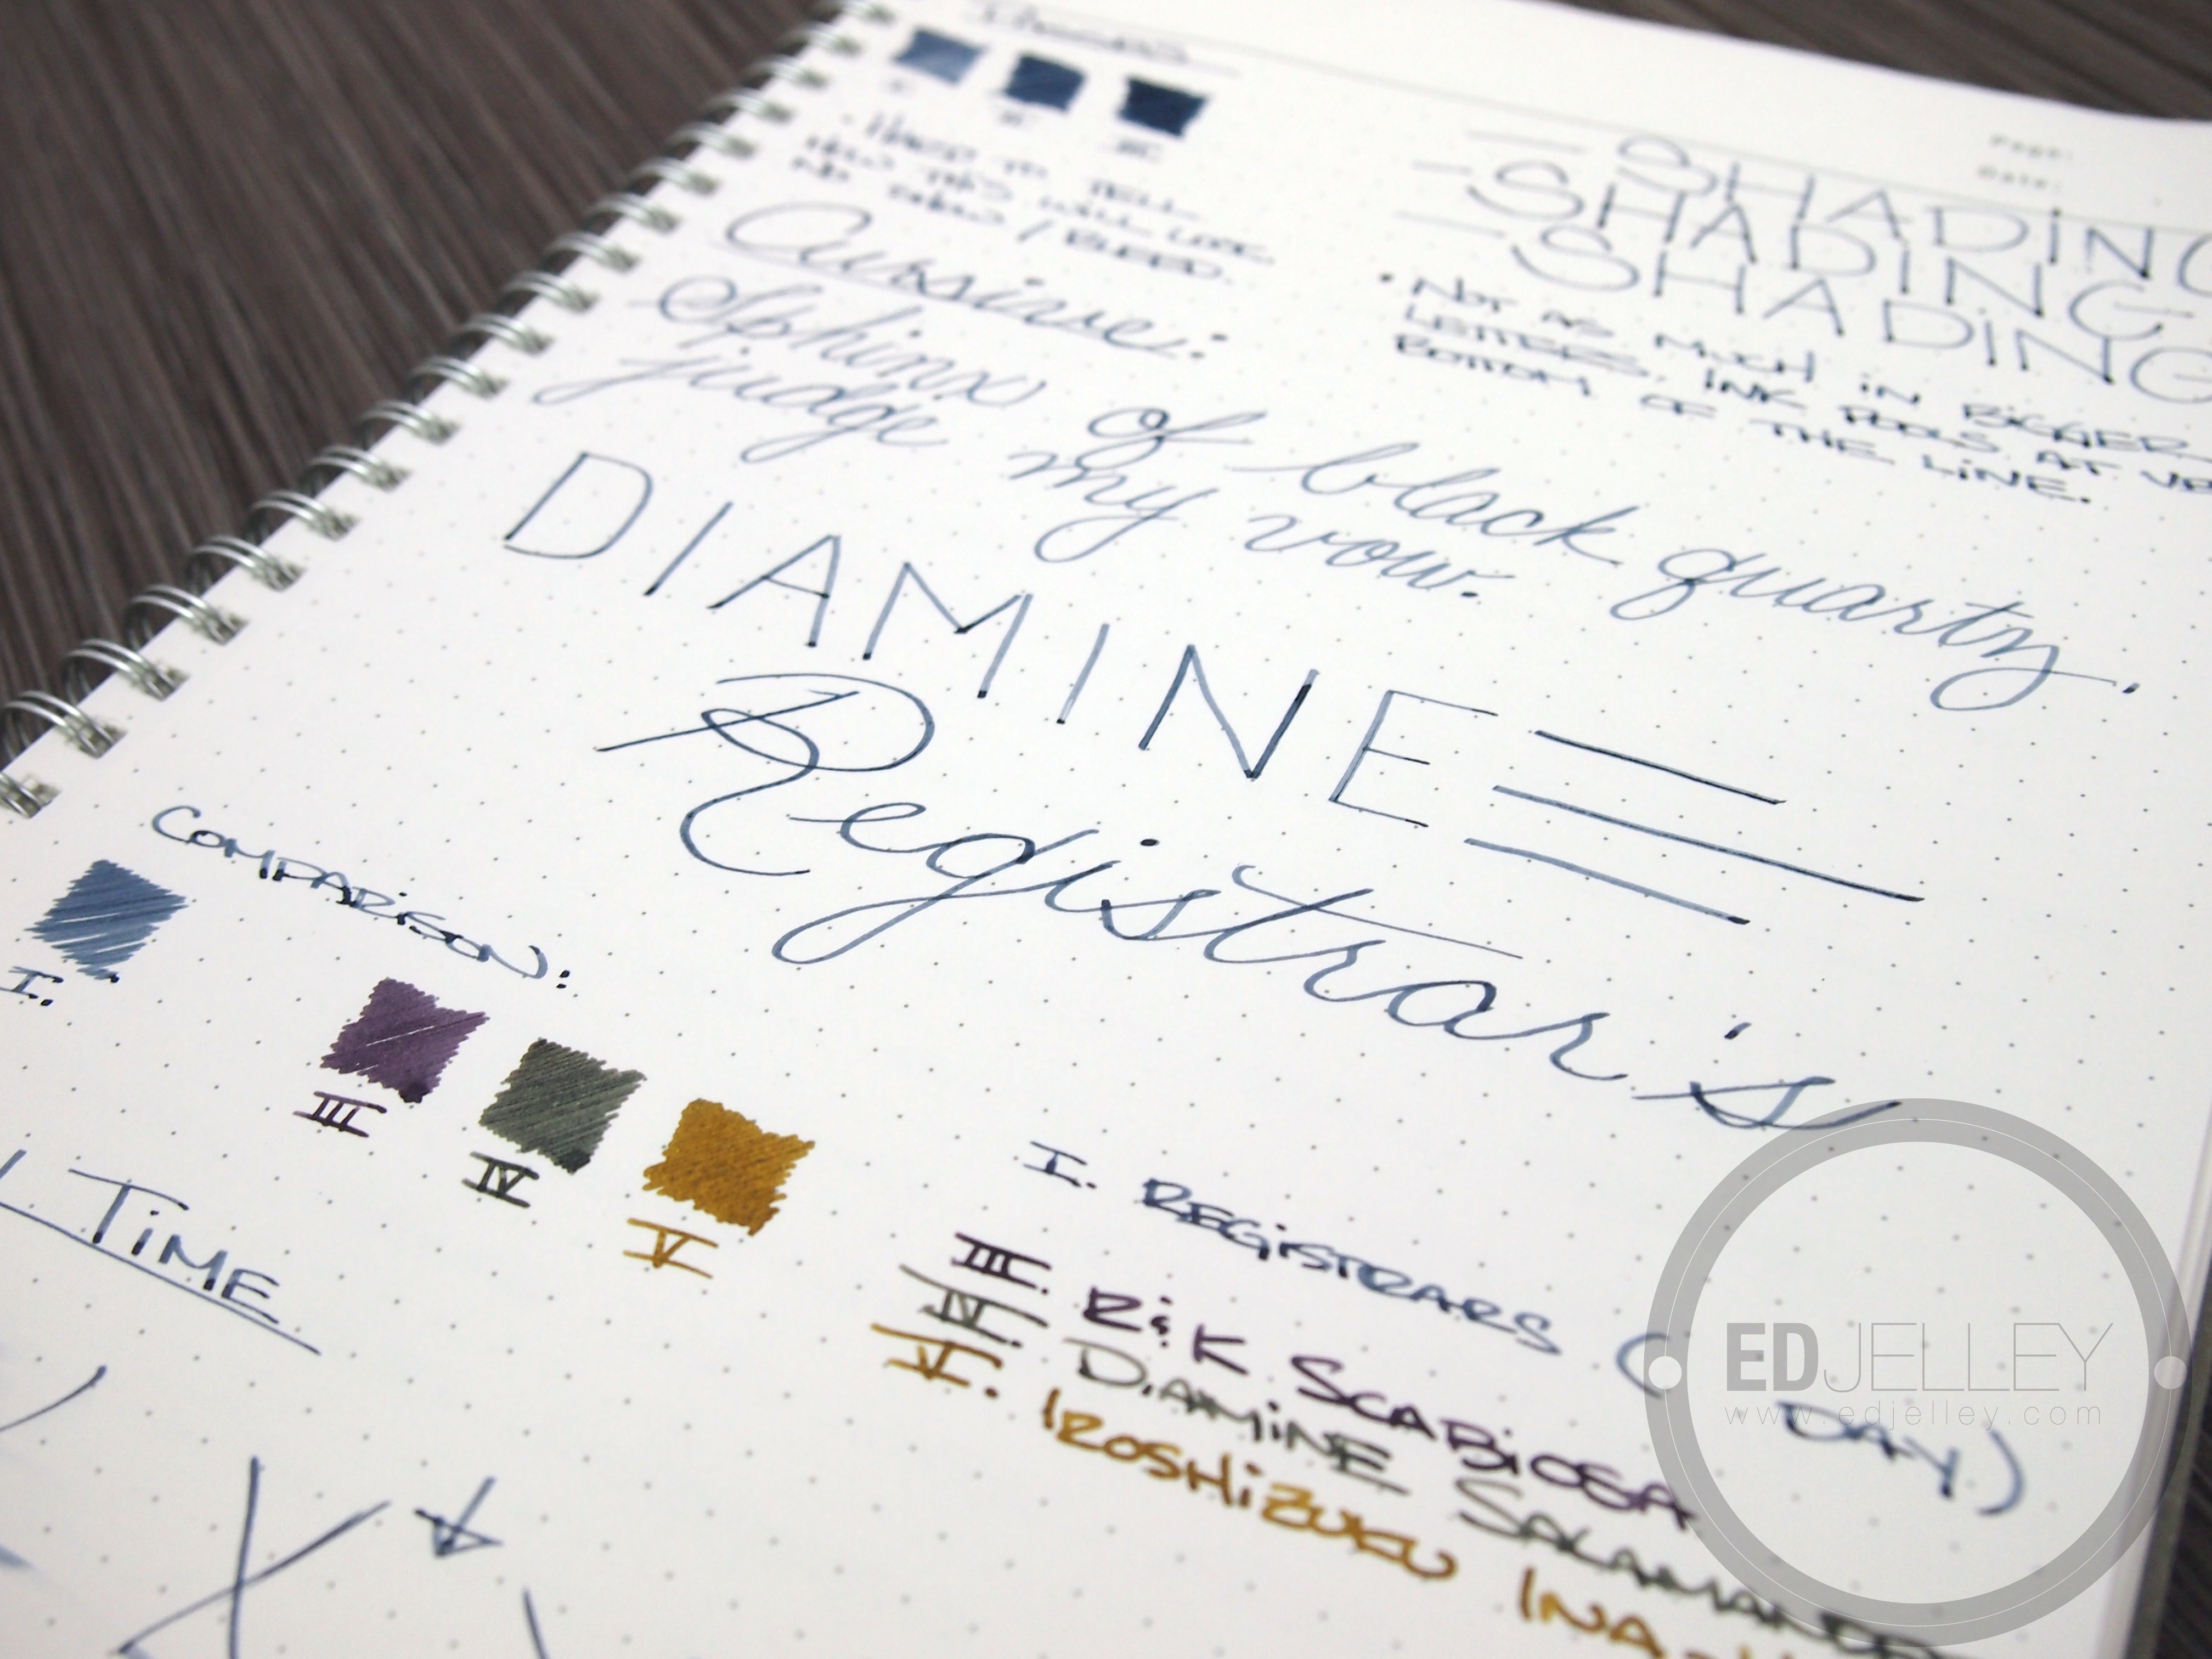 I II III
· HARD TO TELL
HOW THIS WILL LOOK
NO SHOW / BLEED.
Page:
Date:
SHADING
SHADING
SHADING
· NOT AS MUCH IN BIGGER
LETTERS. INK POOLS AT
BOTTOM OF THE LINE.
Cursive:
Sphinx of black quartz,
judge my vow.
DIAMINE
Registrar's
COMPARISON:
I.
III
IV
V
TIME
I. REGISTRARS ( DAY)
III. R&K SCABIOSA
IV. DIAMINE SALAMANDER
V. IROSHIZUKU INA-
EDJELLEY
www.edjelley.com